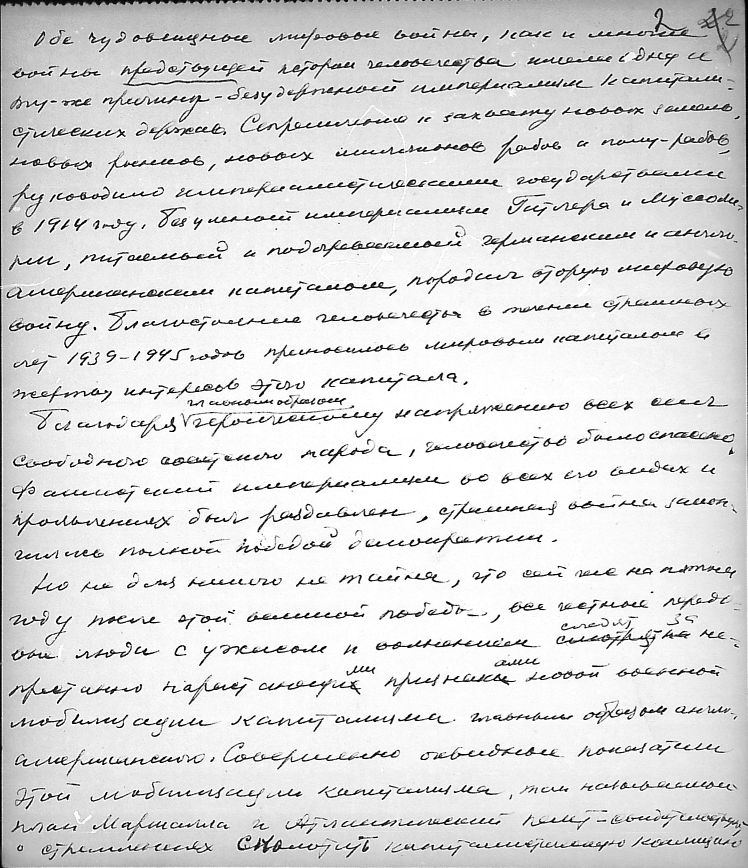 2
Обе чудовищные мировые войны, как и многие
войны предстоящей истории человечества имели одну и
ту-же причину – безудержный империализм капитали-
стических держав. Стремление к захвату новых земель,
новых рынков, новых миллионов рабов и полу-рабов,
руководило империалистическими государствами
в 1914 году. Безумный империализм Гитлера и Муссоли-
ни, питаемый и подогреваемый германским и англо-
американским капиталом, породил вторую мировую
войну. Благосостояние человечества в течении страшных
лет 1939–1945 годов приносилось мировым капиталом в
жертву интересов этого капитала.
главным образом
Благодаря героическому напряжению всех сил
свободного советского народа, человечество было спасено.
Фашистский империализм во всех его видах и
проявлениях был раздавлен, страшная война закон-
чилась полной победой демократии.
Но не для никого не тайна, что сейчас на пятом
году после этой великой победы, все честные передо-
следят за
вые люди с ужасом и волнением смотрят на не-
ми ами
престанно нарастающих признаки новой военной
мобилизации капитализма главным образом англо-
американского. Совершенно очевидные показатели
этой мобилизации капитализма, так называемый
план Маршалла и Атлантический пакт – свидетельствует
о стремлениях сколотить капиталистическую коалицию